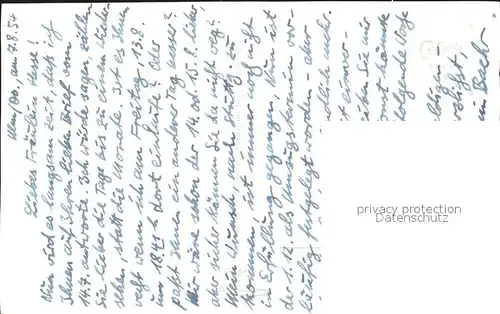 Ulm/Do, am 7.8.54
Liebes Fräulein Hesse!
Nun wird es langsam Zeit, daß ich
Ihnen auf Ihren lieben Brief vom
14.7. antworte. Ich würde sagen, zählen
Sie lieber die Tage bis zu einem Wieder-
sehen, statt die Monate. Ist es Ihnen
recht wenn ich am Freitag 13.8.
um 18.44 h dort einlaufe? Oder
paßt Ihnen ein anderer Tag besser?
Mir wäre schon der 14. od. 15.8. lieber,
aber sicher können Sie da nicht weg?
Mein Wunsch, nach Stuttg. zu
kommen, ist immer noch nicht
in Erfüllung gegangen. Nun ist
der 1.12. als Umzugstermin vor-
läufig festgelegt worden - aber
endlich mehr.
einver-
Sie mir
sonst könnte
folgende Tage
privacy protection
Datenschutz